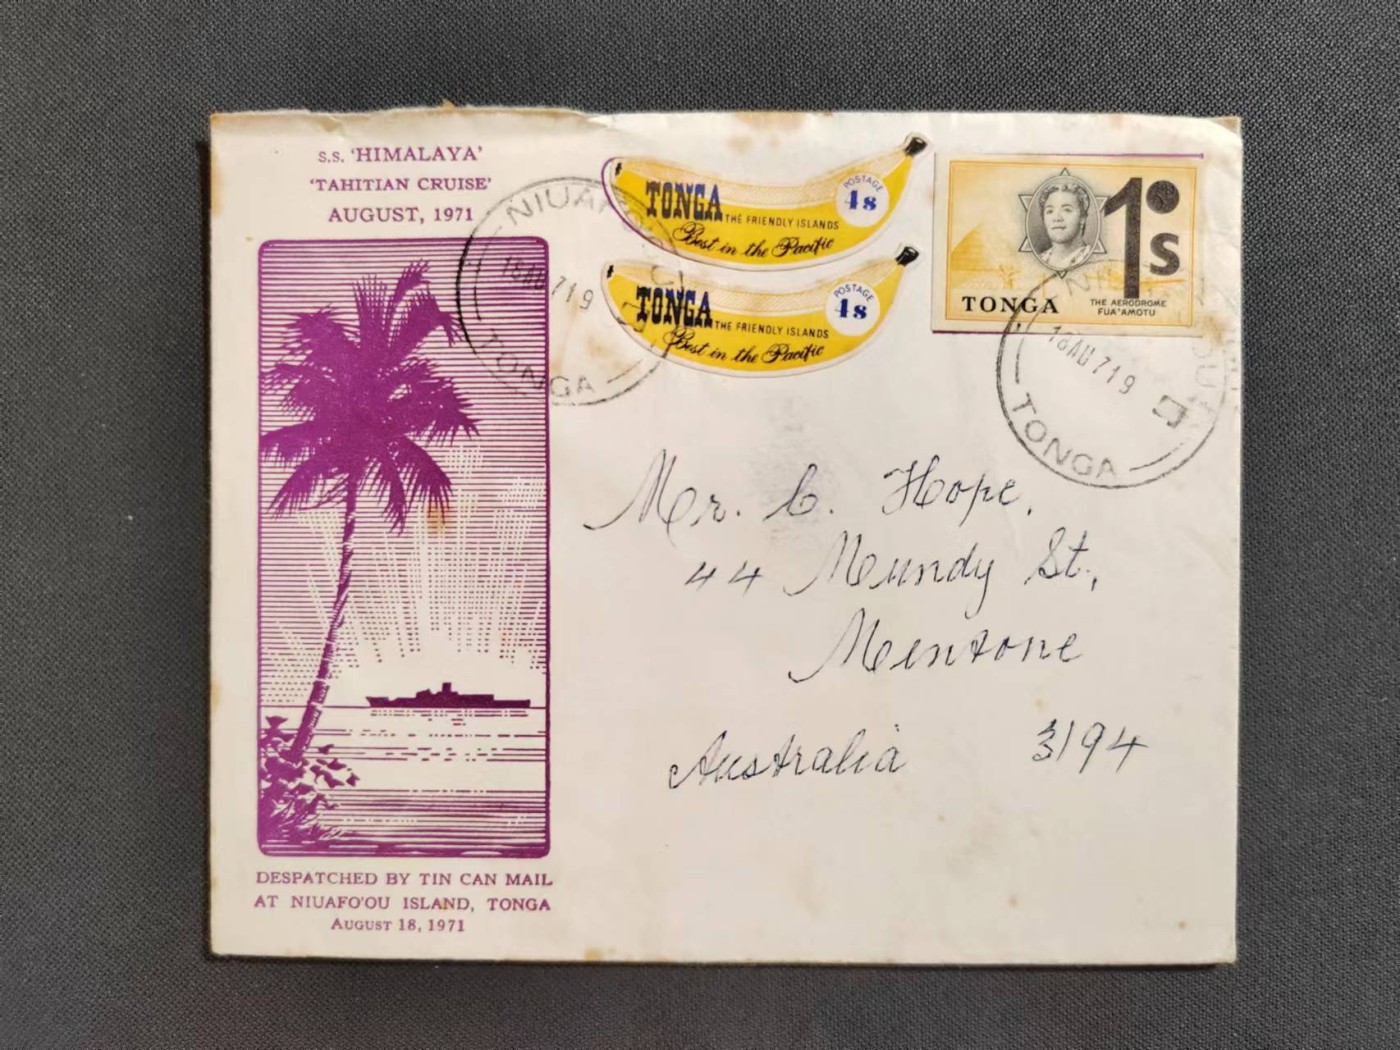 S.S. 'HIMALAYA'
'TAHITIAN CRUISE'
AUGUST, 1971
DESPATCHED BY TIN CAN MAIL
AT NIUAFO'OU ISLAND, TONGA
AUGUST 18, 1971
TONGA THE FRIENDLY ISLANDS
Best in the Pacific
POSTAGE
4s
TONGA THE FRIENDLY ISLANDS
Best in the Pacific
POSTAGE
4s
1s
TONGA
THE AERODROME
FUA'AMOTU
18AU 71 9
TONGA
18AU 71 9
TONGA
Mr. C. Hope,
44 Mundy St.,
Mentone
Australia 3194